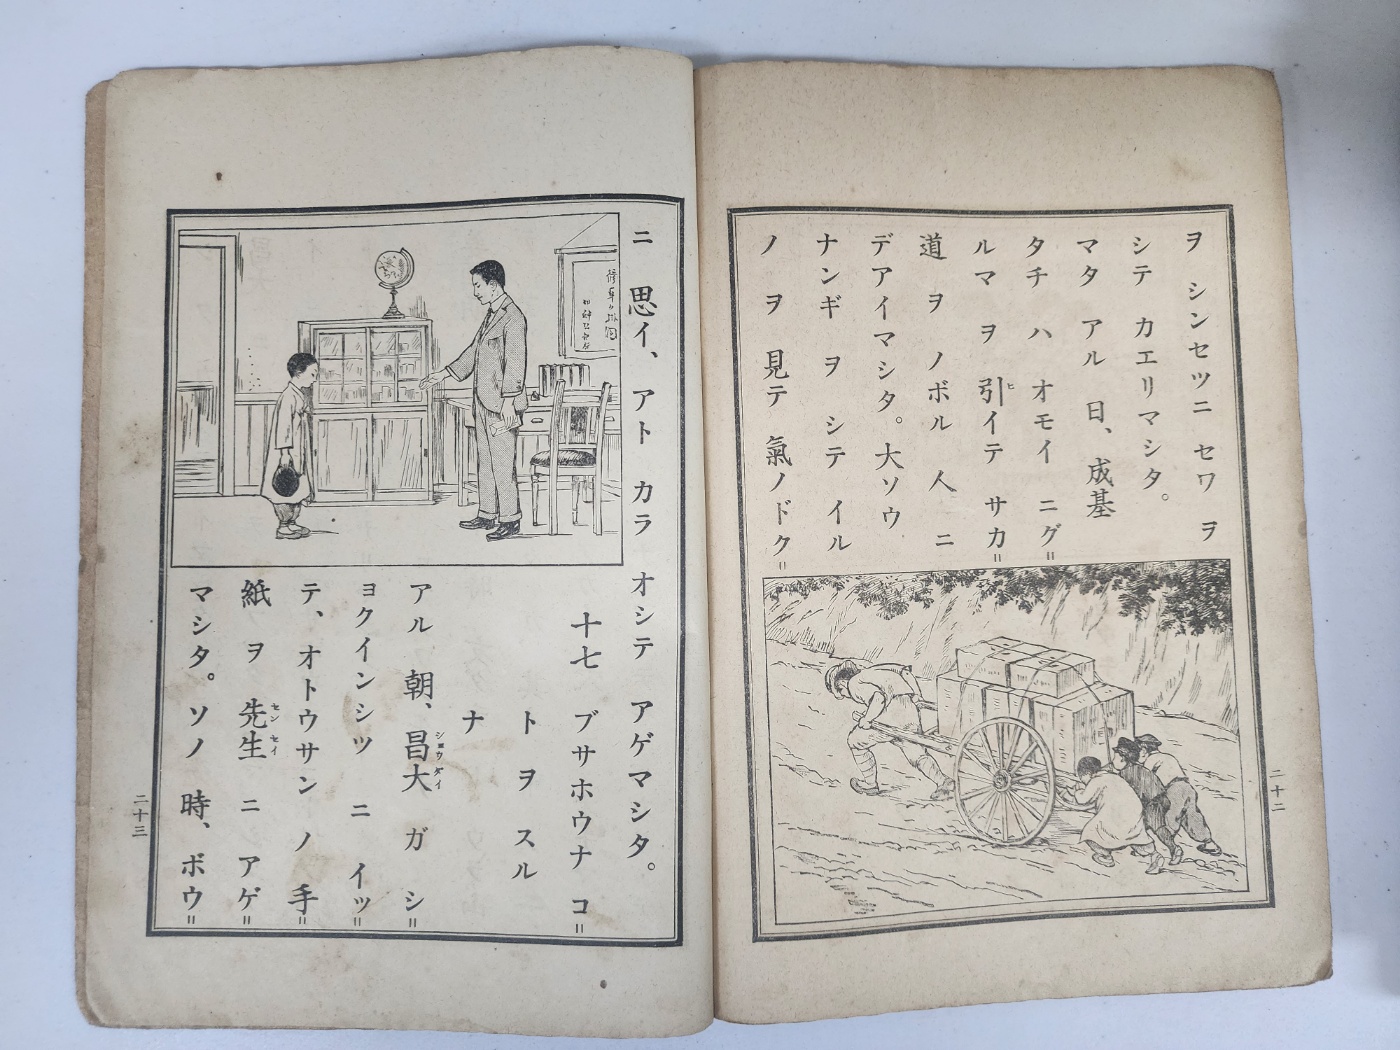 ヲ シンセツニ セワ ヲ
シテ カエリマシタ。
マタ アル 日、成基
タチ ハ オモイ ニグ=
ルマ ヲ 引イテ サカ=
ヒ
道 ヲ ノボル 人 ニ
デアイマシタ。大ソウ
ナンギ ヲ シテ イル
ノ ヲ 見テ 氣ノドク=
二十二
ニ 思イ、アト カラ オシテ アゲマシタ。
十七 ブサホウナ コ=
ト ヲ スル
ナ
アル 朝、昌大 ガ シ=
ショウ ダイ
ヨクインシツ ニ イッ=
テ、オトウサン ノ 手=
紙 ヲ 先生 ニ アゲ=
セン セイ
マシタ。ソノ 時、ボウ=
二十三